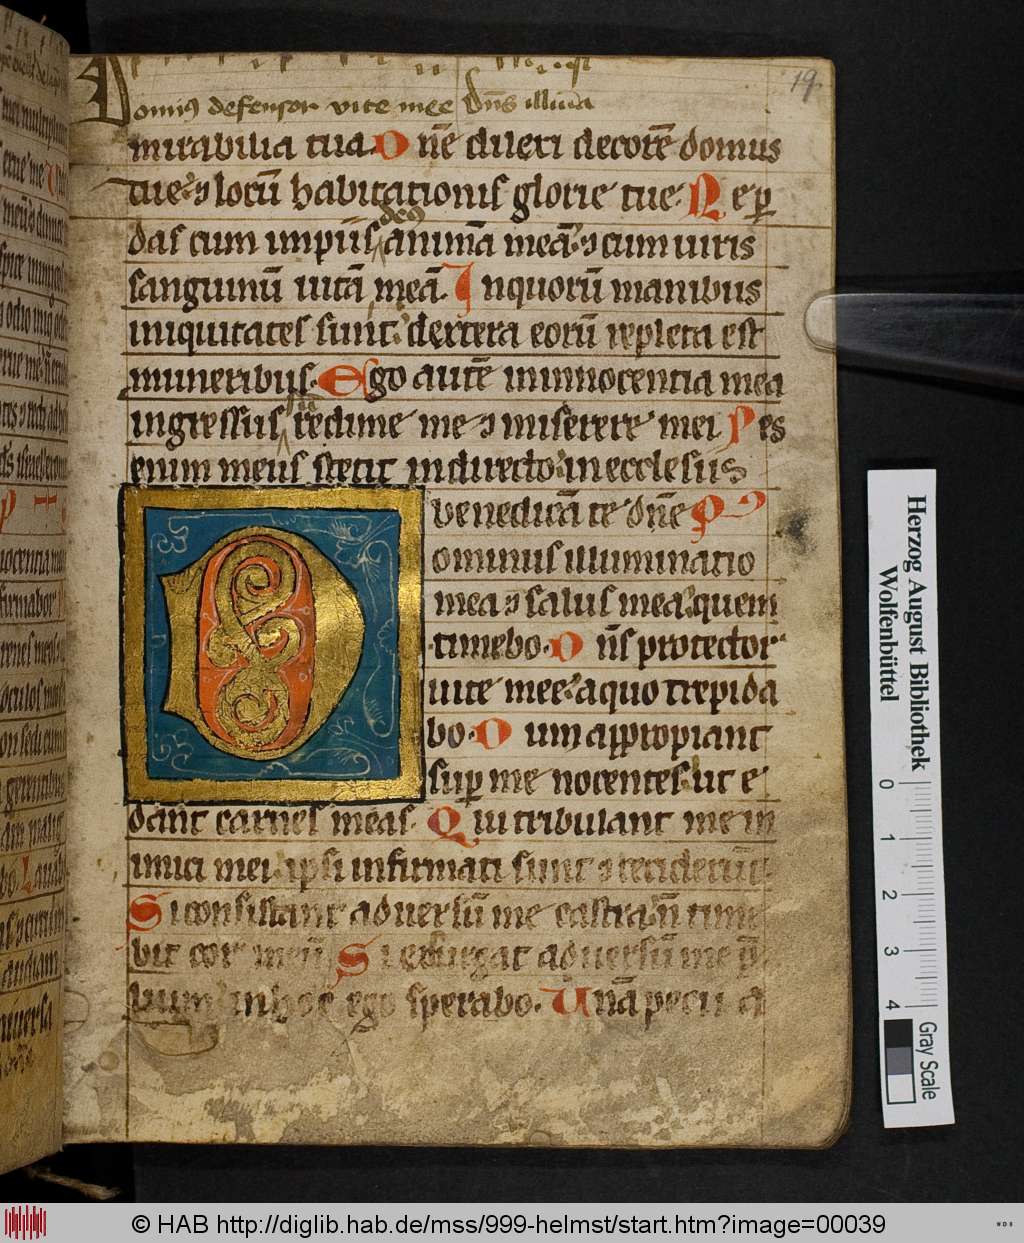 19
Domin9 defensor vite mee Dn̄s illūīa
mirabilia tua. D n̄e dilexi decorē domus
tue. ⁊ locū habitationis glorie tue. N e ꝑ
deus
das cum impiis animā meā. ⁊ cum uiris
sanguinū uitā meā. I nquorū manibus
iniquitates sunt. dextera eorū repleta est
muneribus. E go autē in innocentia mea
ingressus redime me ⁊ miserere mei P es
enim meus stetit in directo in ecclesiis
benedicā te dn̄e P
ominus illuminatio
mea ⁊ salus mea. quem
timebo. D n̄s protector
uite mee. a quo trepida
bo. D um appropiant
suꝑ me nocentes. ut e
dant carnes meas. Q ui tribulant me in
imici mei. ipsi infirmati sunt ⁊ ceciderūt.
S i consistant aduersū me castra. n̄ time
bit cor meū S i exsurgat aduersū me p̄
lium in hoc ego sperabo. U nā pecii a
Herzog August Bibliothek
Wolfenbüttel
0 1 2 3 4
Gray Scale
© HAB http://diglib.hab.de/mss/999-helmst/start.htm?image=00039
WDB